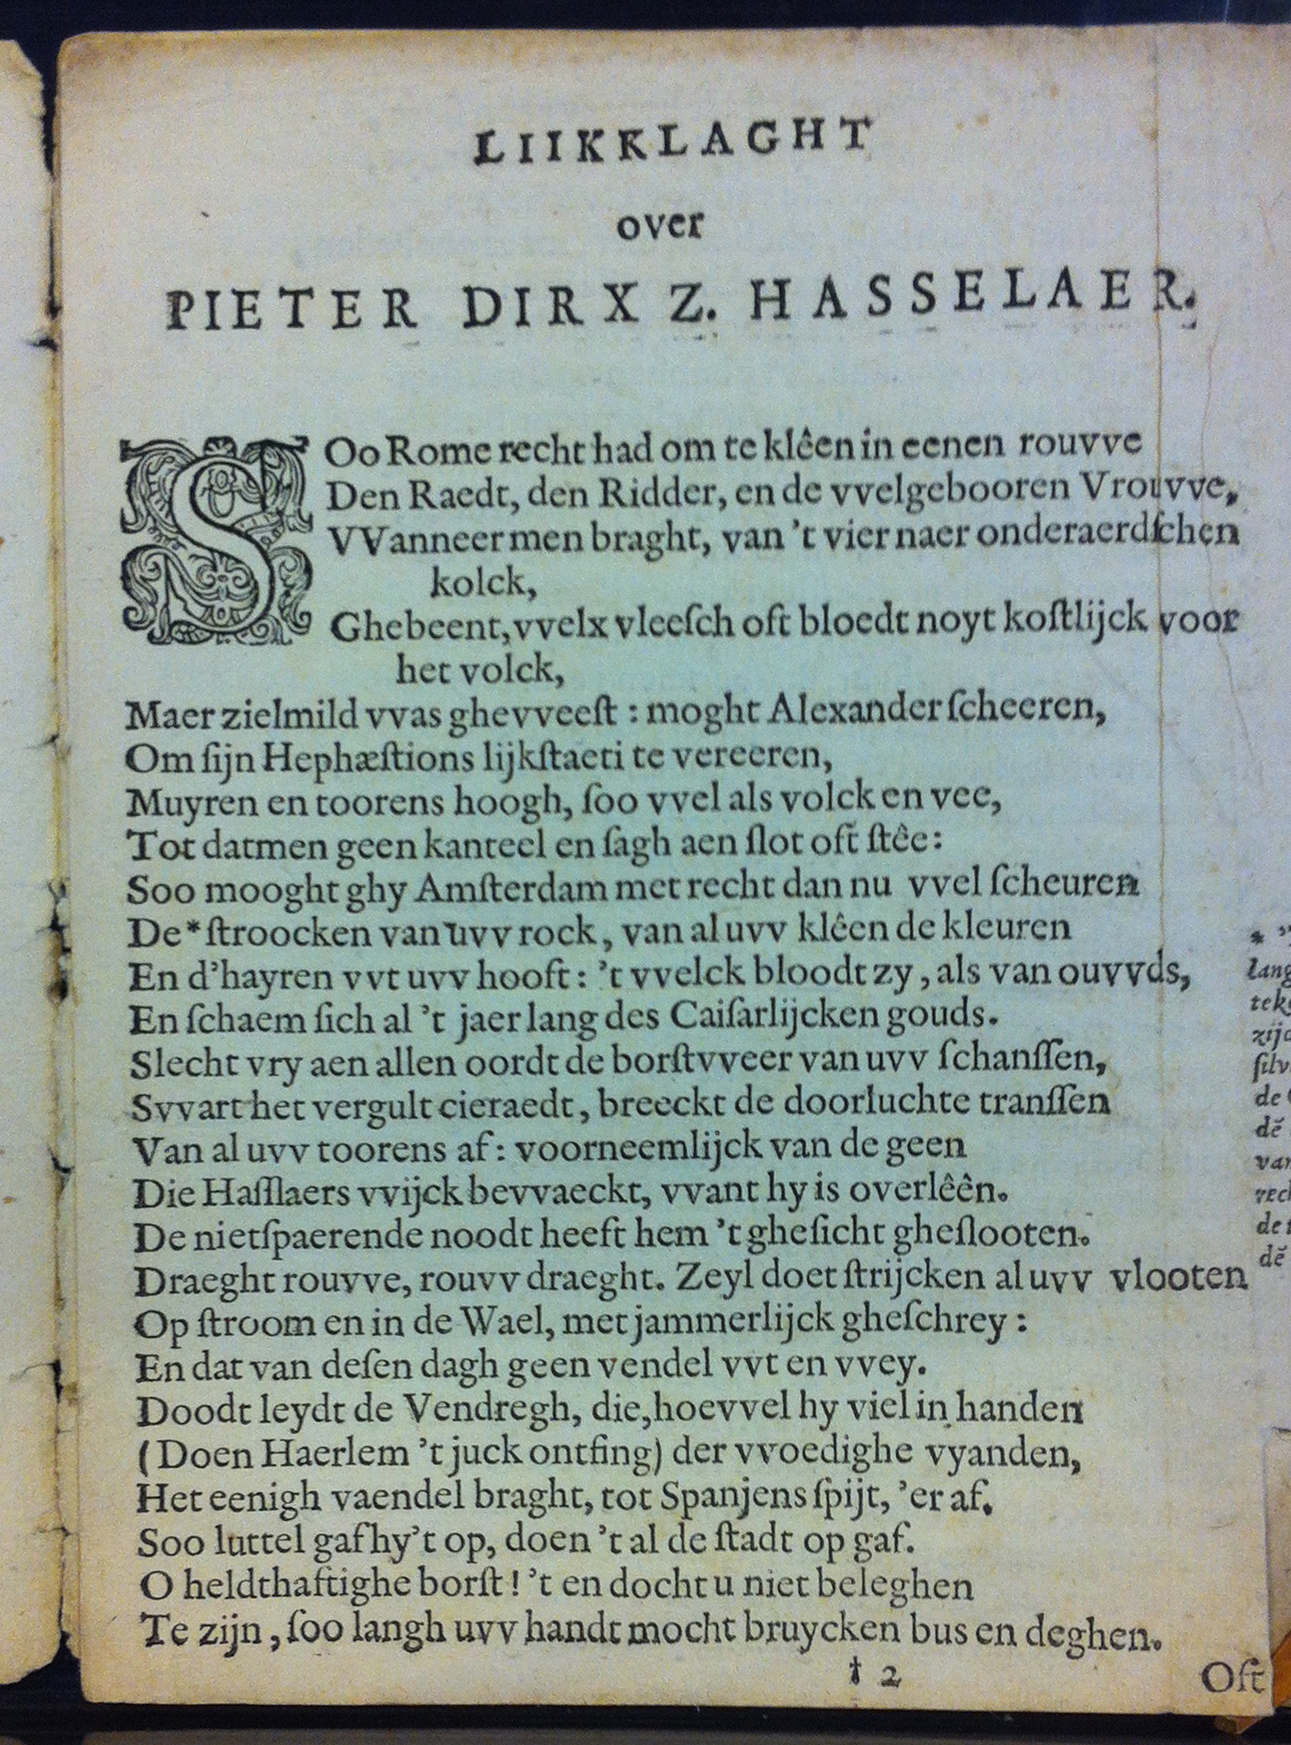 LIIKKLAGHT
over
PIETER DIRX Z. HASSELAER.
SOo Rome recht had om te klêen in eenen rouvve
Den Raedt, den Ridder, en de vvelgebooren Vrouvve,
VVanneer men braght, van 't vier naer onderaerdſchen
kolck,
Ghebeent, vvelx vleeſch oft bloedt noyt koſtlijck voor
het volck,
Maer zielmild vvas ghevveeſt : moght Alexander ſcheeren,
Om ſijn Hephæſtions lijkſtaeti te vereeren,
Muyren en toorens hoogh, ſoo vvel als volck en vee,
Tot datmen geen kanteel en ſagh aen ſlot oft ſtêe:
Soo mooght ghy Amſterdam met recht dan nu vvel ſcheuren
De * ſtroocken van uvv rock, van al uvv klêen de kleuren
En d'hayren vvt uvv hooft: 't vvelck bloodt zy, als van ouvvds,
En ſchaem ſich al 't jaer lang des Caiſarlijcken gouds.
Slecht vry aen allen oordt de borſtvveer van uvv ſchanſſen,
Svvart het vergult cieraedt, breeckt de doorluchte tranſſen
Van al uvv toorens af: voorneemlijck van de geen
Die Haſſlaers vvijck bevvaeckt, vvant hy is overlêên.
De nietſpaerende noodt heeft hem 't gheſicht gheſlooten.
Draeght rouvve, rouvv draeght. Zeyl doet ſtrijcken al uvv vlooten
Op ſtroom en in de Wael, met jammerlijck gheſchrey :
En dat van deſen dagh geen vendel vvt en vvey.
Doodt leydt de Vendregh, die, hoevvel hy viel in handen
(Doen Haerlem 't juck ontfing) der vvoedighe vyanden,
Het eenigh vaendel braght, tot Spanjens ſpijt, 'er af.
Soo luttel gaf hy't op, doen 't al de ſtadt op gaf.
O heldthaftighe borſt! 't en docht u niet beleghen
Te zijn, ſoo langh uvv handt mocht bruycken bus en deghen.
† 2
Oft
*
lang
zijd
ſilv
de
dĕ
van
rech
de
dĕ